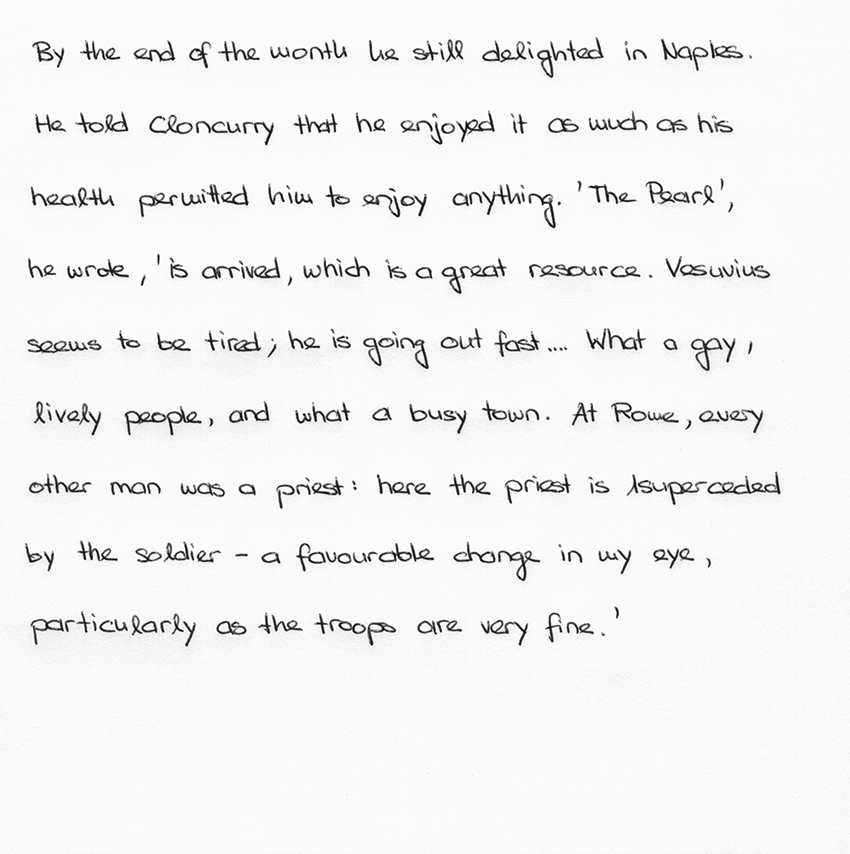 By the end of the month he still delighted in Naples.
He told Cloncurry that he enjoyed it as much as his
health permitted him to enjoy anything. 'The Pearl',
he wrote, 'is arrived, which is a great resource. Vesuvius
seems to be tired; he is going out fast.... What a gay,
lively people, and what a busy town. At Rome, every
other man was a priest: here the priest is 1superceded
by the soldier - a favourable change in my eye,
particularly as the troops are very fine.'